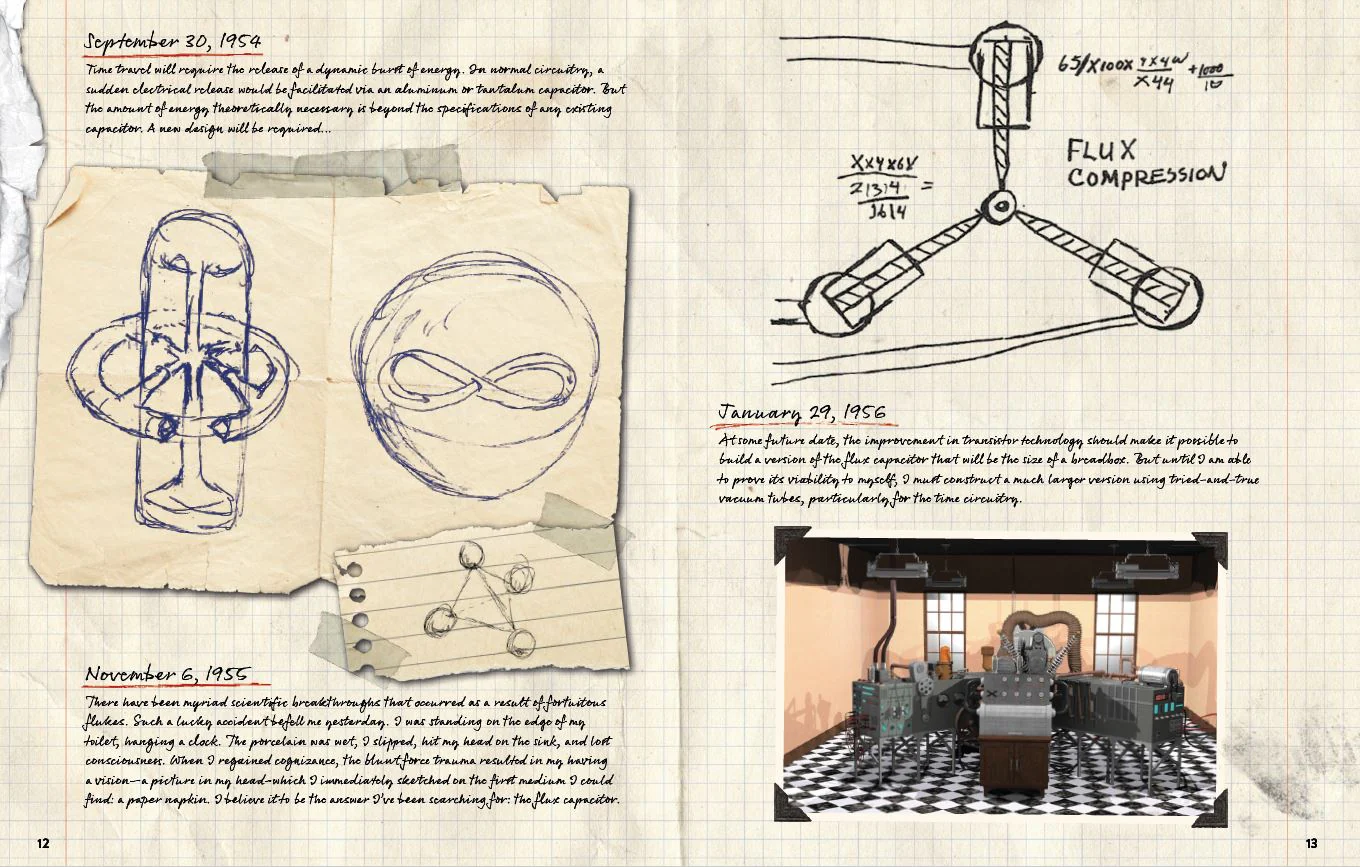 September 30, 1954
Time travel will require the release of a dynamic burst of energy. In normal circuitry, a
sudden electrical release would be facilitated via an aluminum or tantalum capacitor. But
the amount of energy theoretically necessary is beyond the specifications of any existing
capacitor. A new design will be required...
November 6, 1955
There have been myriad scientific breakthroughs that occurred as a result of fortuitous
flukes. Such a lucky accident befell me yesterday. I was standing on the edge of my
toilet, hanging a clock. The porcelain was wet, I slipped, hit my head on the sink, and lost
consciousness. When I regained cognizance, the blunt force trauma resulted in my having
a vision—a picture in my head—which I immediately sketched on the first medium I could
find: a paper napkin. I believe it to be the answer I've been searching for: the flux capacitor.
12
FLUX
COMPRESSION
January 29, 1956
At some future date, the improvement in transistor technology should make it possible to
build a version of the flux capacitor that will be the size of a breadbox. But until I am able
to prove its viability to myself, I must construct a much larger version using tried-and-true
vacuum tubes, particularly for the time circuitry.
13